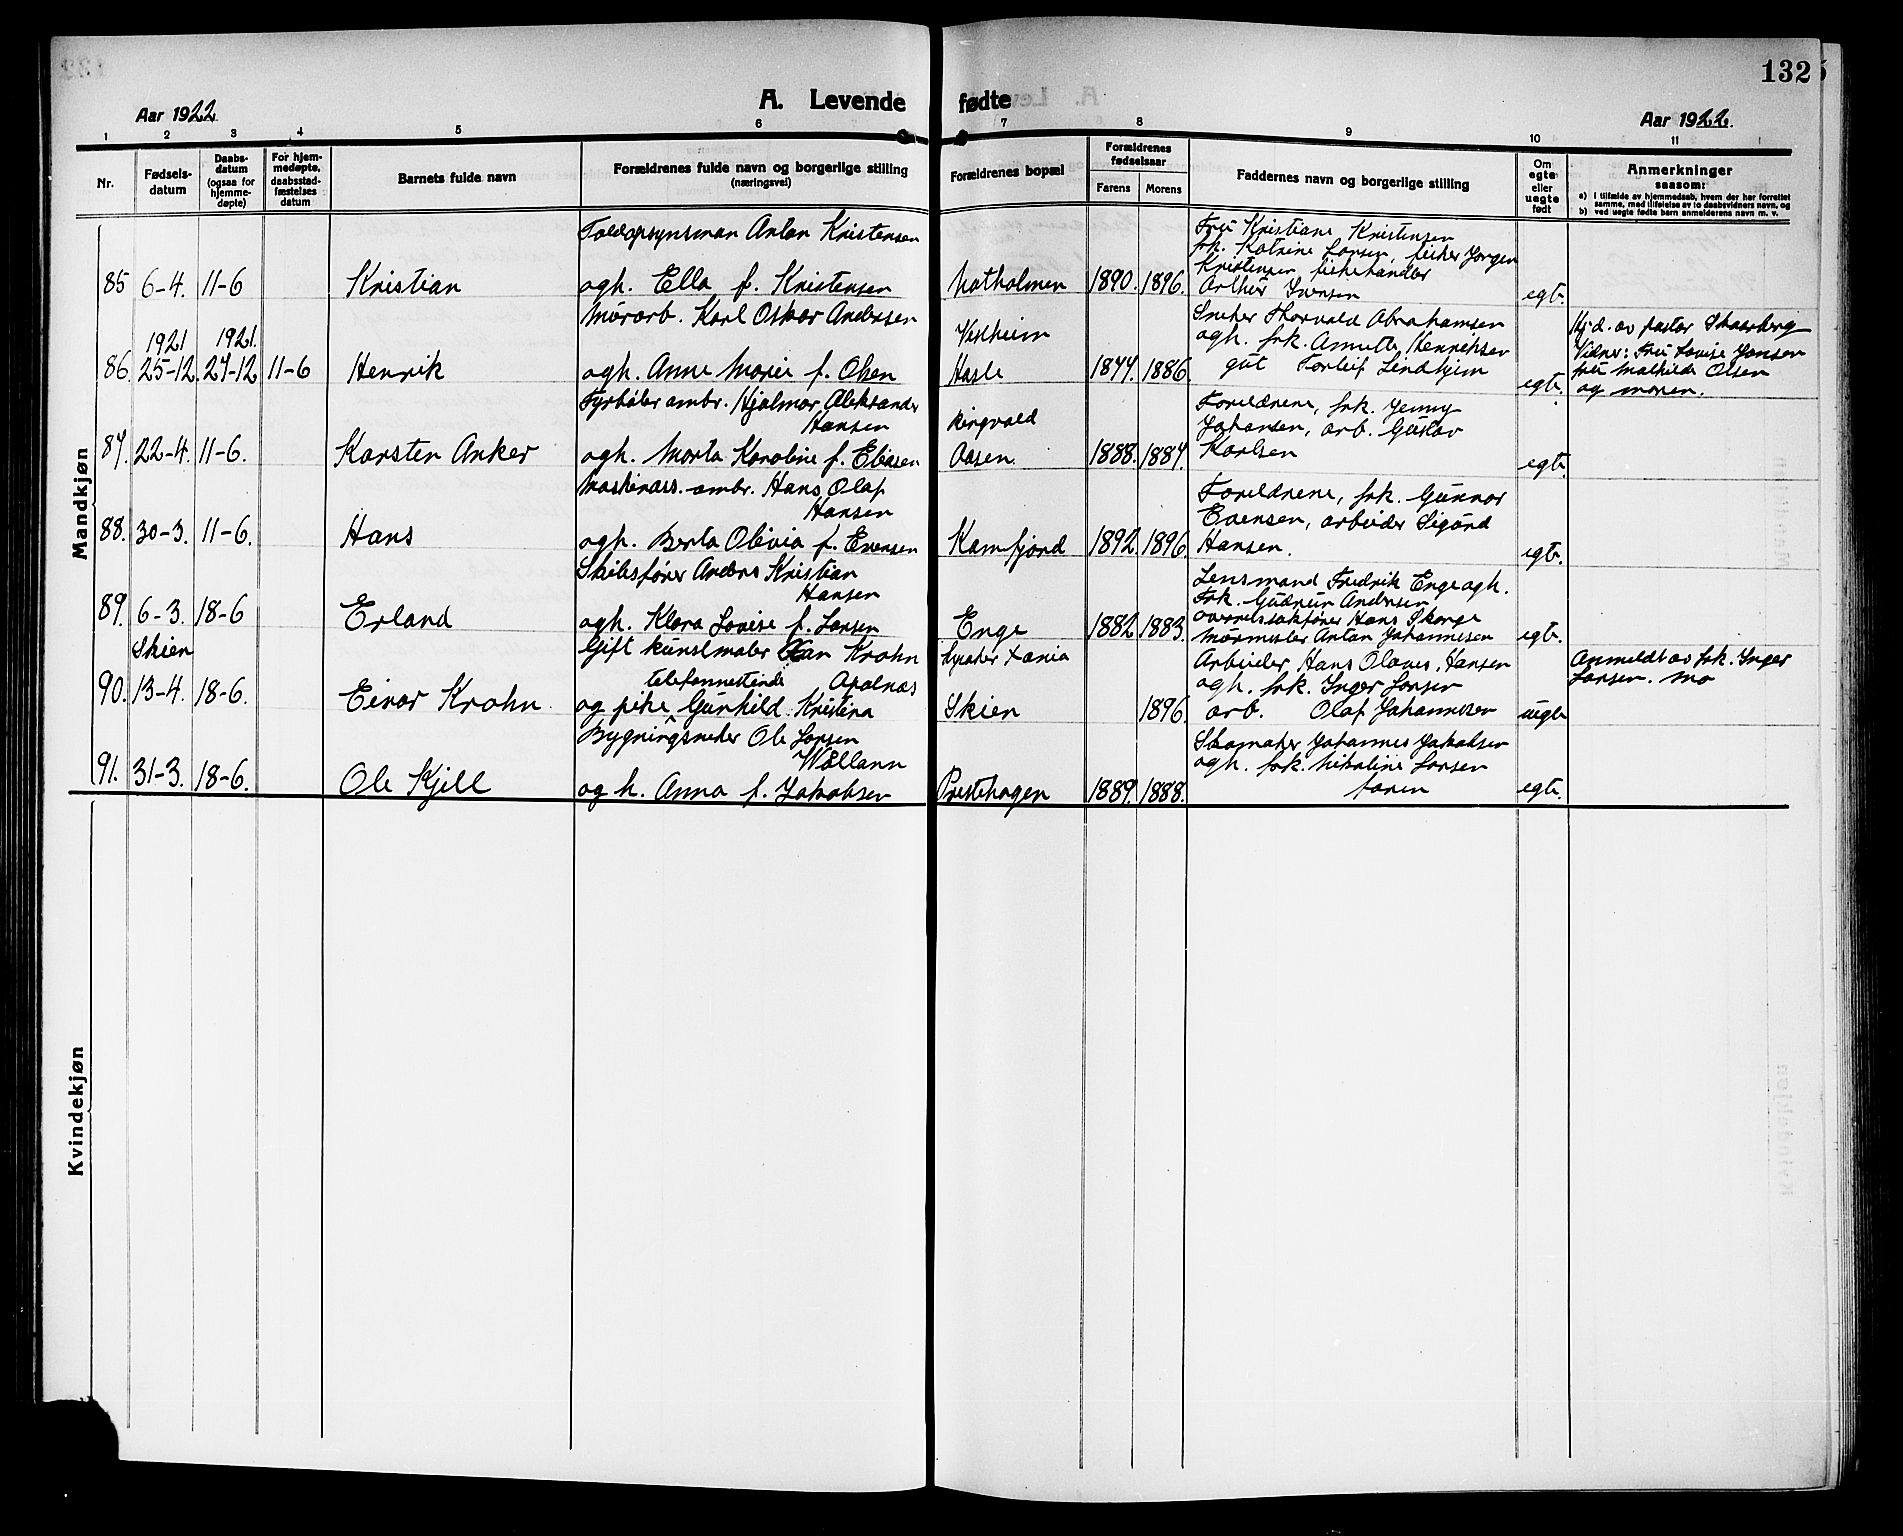 132
A. Levende fødte
Aar 1922.
Aar 1922.
1 2 3 4 5 6 7 8 9 10 11
Nr.
Fødsels-datum
Daabs-datum (ogsaa for hjemme-døpte)
For hjem-medøpte, daabsstad-fæstelses datum
Barnets fulde navn
Forældrenes fulde navn og borgerlige stilling (næringsvei)
Forældrenes bopæl
Forældrenes fødselsaar
Farens Morens
Faddernes navn og borgerlige stilling
Om egte eller uegte født
Anmerkninger saasom:
a) I tilfælde av hjemmedaab, hvem der har forrettet samme, med tilføielse av to daabsvidners navn, og
b) ved uegte fødte barn anmelderens navn m. v.
Mandkjøn
Toldopsynsman Anton Kristensen
Fru Kristiane Kristensen
frk. Katrine Larsen, Jørgen
85 6-4. 11-6 Kristian ogh. Ella f. Kristensen Natholmen 1890. 1896. Kristensen,
Arthur Iversen egte.
Murarb. Karl Oskar Andersen
Sneker Thorvald Abrahamsen
1921 1921. Vestheim
ogh. frk. Annette Henriksen
Hj.d. av pastor Skaarberg
86. 25-12. 27-12 11-6 Henrik ogh. Anne Marie f. Olsen Hasle 1877. 1886. gut Torleif Lindhjem egte.
Vidner: Fru Lovise Jansen
fru Mathilde Olsen
og moren.
Fyrbøter ombr. Hjalmar Aleksander
Hansen
Ringvald
Forældrene, frk. Jenny
Johansen, arb. Gustav
87. 22-4. 11-6. Karsten Anker ogh. Marta Karoline f. Eliasen Aasen. 1888. 1887. Karlsen egte
Maskinass. ombr. Hans Olaf
Hansen
Forældrene, frk. Gunnar
Evensen, arbeider Sigurd
88. 30-3. 11-6. Hans ogh. Berta Olivia f. Evensen Kamfjord 1892. 1896. Hansen. egte.
Skibsfører Anders Kristian
Hansen
Lensmand Fredrik Enge ogh.
Frk. Gudrun Andersen
89. 6-3. 18-6 Erland ogh. Klara Lovise f. Larsen Enge 1882 1883. overretssakfører Hans Skorge
Murmester Anton Johannesen egte.
Skien
Gift kunstmaler Xan Krohn
Lysaker
Arbeider Hans Olaves Hansen
Anmeldt av frk. Inger
telefonnestinde Apalnæs
ogh. frk. Inger Larsen
Larsen. Mo
90. 13-4. 18-6. Einar Krohn. og pike Gunhild Kristina Skien 1896. arb. Olaf Johannesen uegte
Bygningssneker Ole Larsen
Wøllann
Skomaker Johannes Jakobsen
ogh. frk. Nikoline Larsen
91. 31-3. 18-6. Ole Kjell og h. Anna f. Jakobsen Prestehagen 1889. 1888. faren egte.
Kvindekjøn